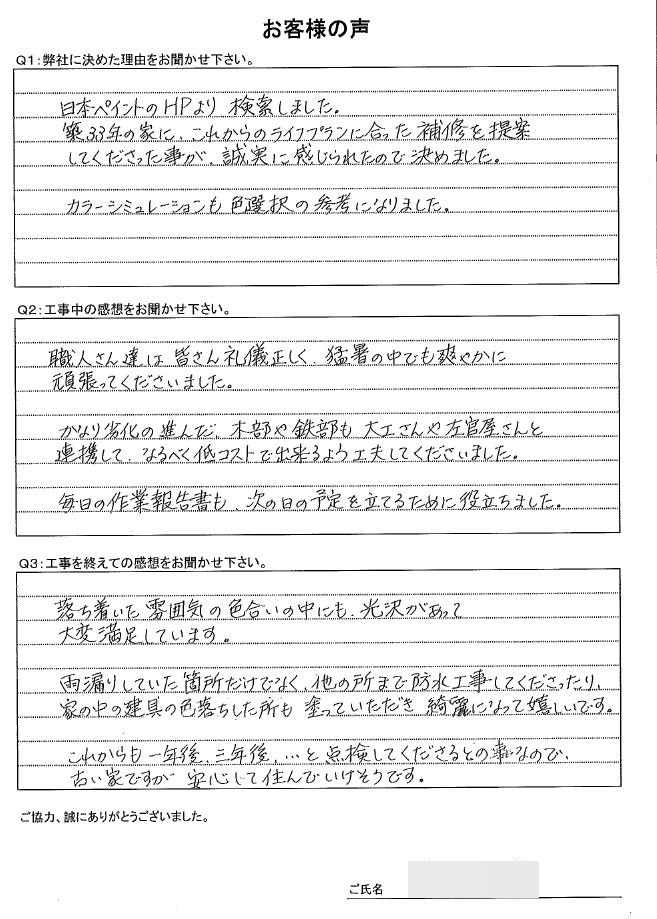 お客様の声
Q1:弊社に決めた理由をお聞かせ下さい。
日本ペイントのHPより 検索しました。
築33年の家に、これからのライフプランに合った 補修を 提案
してくださった事が、誠実に感じられたので 決めました。
カラーシミュレーションも 色選択の参考になりました。
Q2:工事中の感想をお聞かせ下さい。
職人さん達は 皆さん礼儀正しく、猛暑の中でも爽やかに
頑張ってくださいました。
かなり劣化の進んだ、木部や鉄部も 大工さんや左官屋さんと
連携して、なるべく低コストで出来るよう工夫してくださいました。
毎日の作業報告書も、次の日の予定を立てるために役立ちました。
Q3:工事を終えての感想をお聞かせ下さい。
落ち着いた 雰囲気の色合いの中にも、光沢があって
大変満足しています。
雨漏りしていた箇所だけでなく、他の所まで防水工事してくださったり、
家の中の建具の色落ちした所も 塗っていただき 綺麗になって嬉しいです。
これからも 一年後、三年後、…と点検してくださるとの事なので、
古い家ですが 安心して住んでいけそうです。
ご協力、誠にありがとうございました。
ご氏名